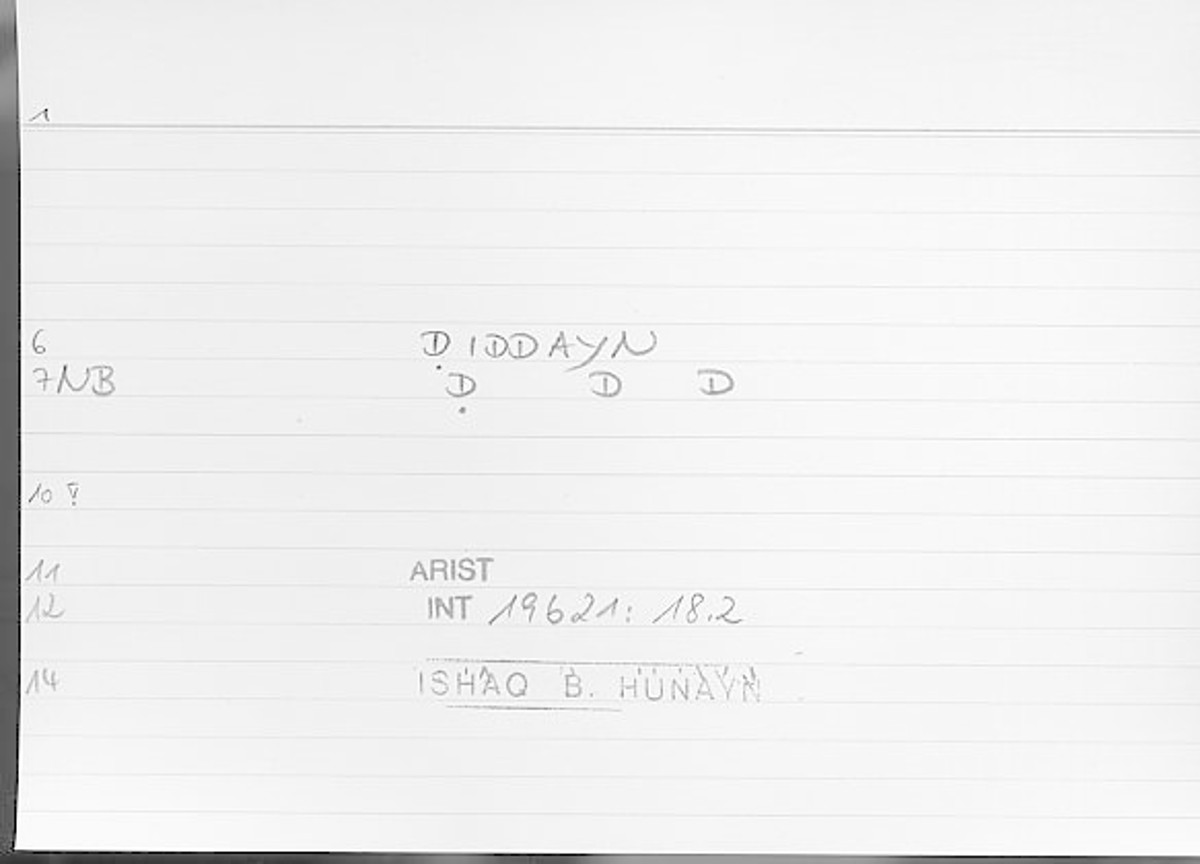 1
6 ḌIDDAYN
7NB Ḍ D D
10 !
11 ARIST
12 INT 19621: 18.2
14 ISHAQ B. HUNAYN